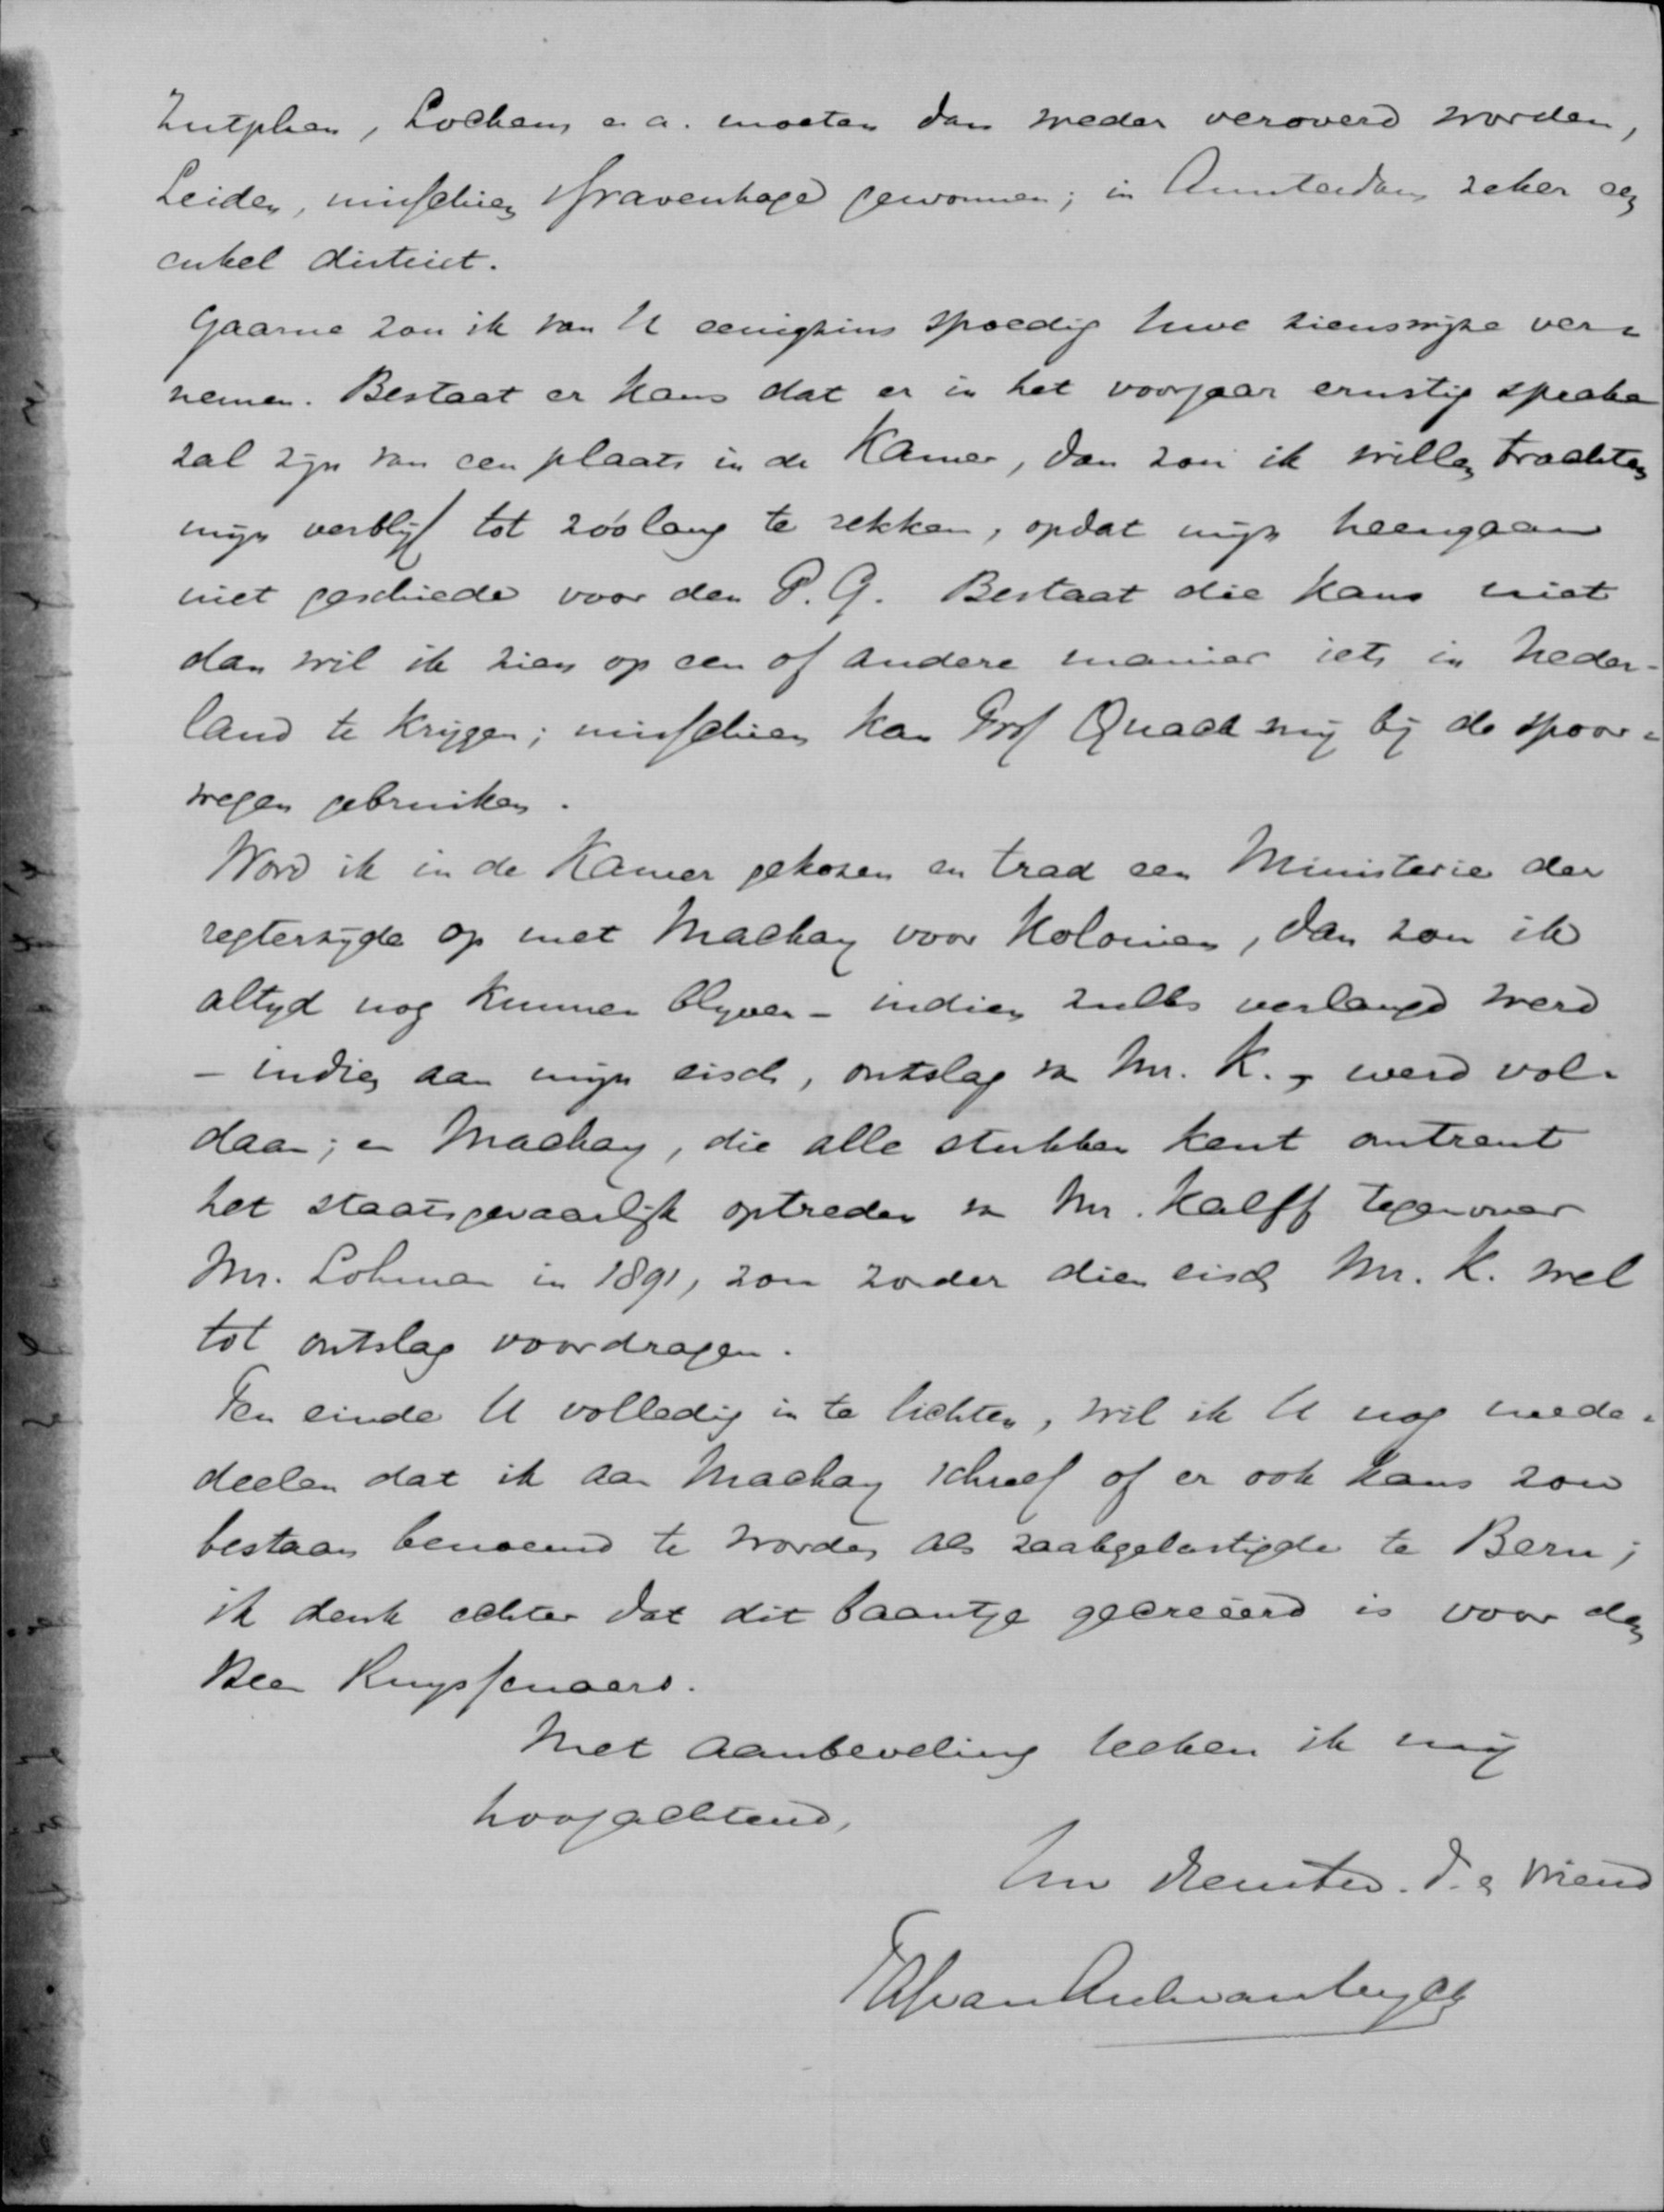 Zutphen, Lochem e.a. moeten dan weder veroverd worden,
Leiden, misschien 's Gravenhage gewonnen; in Amsterdam zeker een
enkel district.
Gaarne zou ik van U eenigzins spoedig Uwe zienswijze ver=
nemen. Bestaat er kans dat er in het voorjaar ernstig sprake
zal zijn van een plaats in de Kamer, dan zou ik willen trachten
mijn verblijf tot zóólang te rekken, opdat mijn heengaan
niet geschiede voor den P.G. Bestaat die kans niet
dan wil ik zien op een of andere manier iets in Neder-
land te krijgen; misschien kan Prof Quack mij bij de spoor=
wegen gebruiken.
Word ik in de Kamer gekozen en trad een Ministerie der
regterzyde op met Mackay voor Kolonien, dan zou ik
altyd nog kunnen blyven - indien zulks verlangd werd
- indien aan mijn eisch, ontslag van Mr. K., werd vol=
daan; en Mackay, die alle stukken kent omtrent
het staatsgevaarlijk optreden van Mr. Kalff tegenover
Mr. Lohman in 1891, zou zonder dien eisch Mr. K. wel
tot ontslag voordragen.
Ten einde U volledig in te lichten, wil ik U nog mede=
deelen dat ik aan Mackay schreef of er ook kans zou
bestaan benoemd te worden als zaakgelastigde te Bern;
ik denk echter dat dit baantje gecreëerd is voor den
Heer Ruyssenaers.
Met aanbeveling teeken ik mij
hoogachtend,
Uw dienstw. d. en vriend